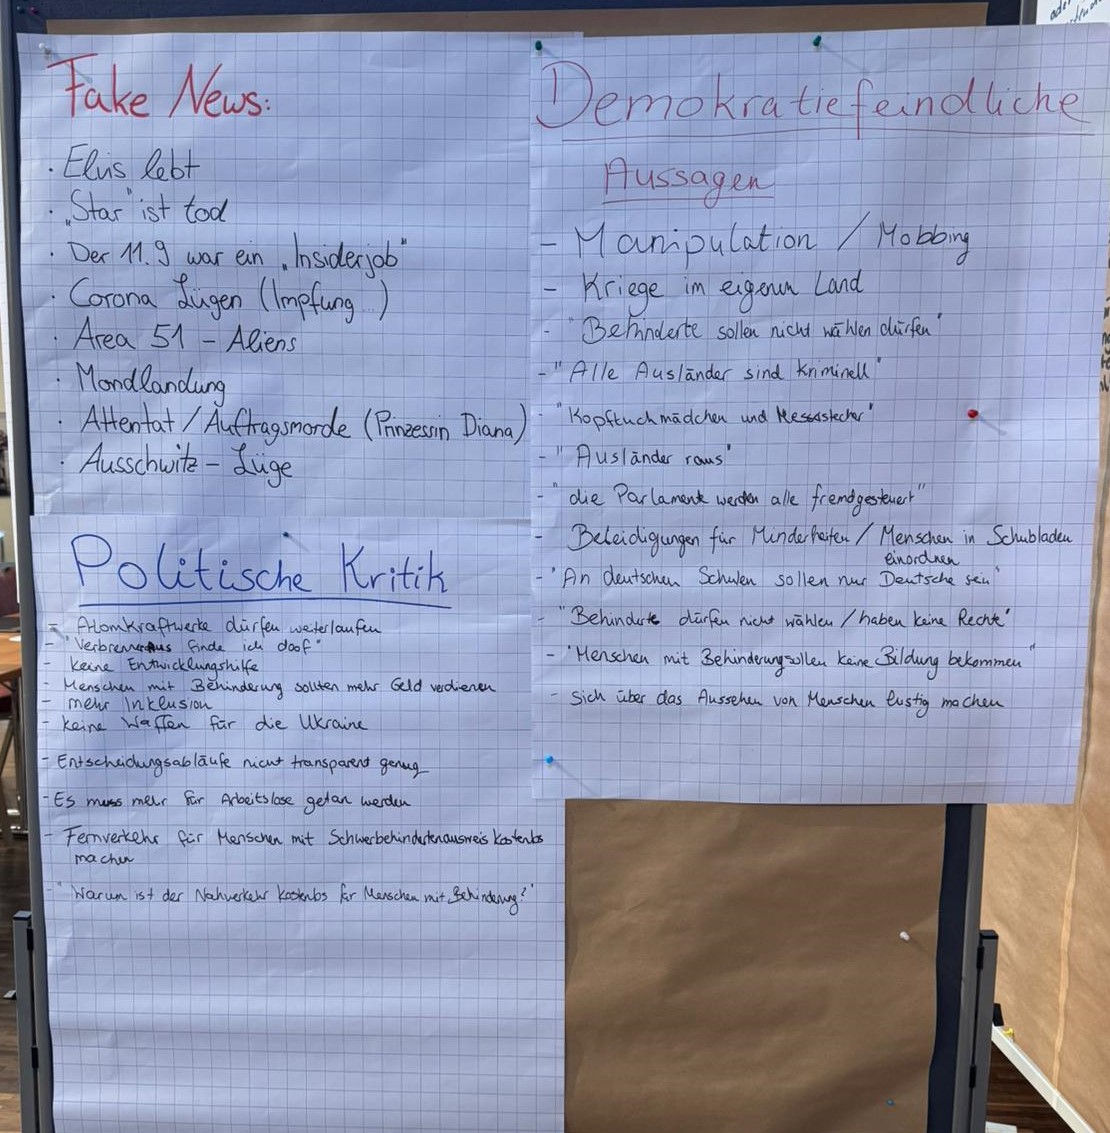 Fake News:
· Elvis lebt
· „Star" ist tod
· Der 11.9 war ein „Insiderjob"
· Corona Lügen (Impfung...)
· Area 51 – Aliens
· Mondlandung
· Attentat / Auftragsmorde (Prinzessin Diana)
· Ausschwitz – Lüge
Politische Kritik
- Atomkraftwerke dürfen weiterlaufen
- "Verbrenneraus finde ich doof"
- keine Entwicklungshilfe
- Menschen mit Behinderung sollten mehr Geld verdienen
- mehr Inklusion
- keine Waffen für die Ukraine
- Entscheidungsabläufe nicht transparent genug
- Es muss mehr für Arbeitslose getan werden
- Fernverkehr für Menschen mit Schwerbehindertenausweis kostenlos
machen
- "Warum ist der Nahverkehr kostenlos für Menschen mit Behinderung?"
Demokratiefeindliche
Aussagen
- Manipulation / Mobbing
- Kriege im eigenen Land
- "Behinderte sollen nicht wählen dürfen"
- "Alle Ausländer sind kriminell"
- "Kopftuchmädchen und Messastecher"
- "Ausländer raus"
- "die Parlamente werden alle fremdgesteuert"
- Beleidigungen für Minderheiten / Menschen in Schubladen
einordnen
- "An deutschen Schulen sollen nur Deutsche sein"
- "Behinderte dürfen nicht wählen / haben keine Rechte"
- "Menschen mit Behinderung sollen keine Bildung bekommen"
- sich über das Aussehen von Menschen lustig machen